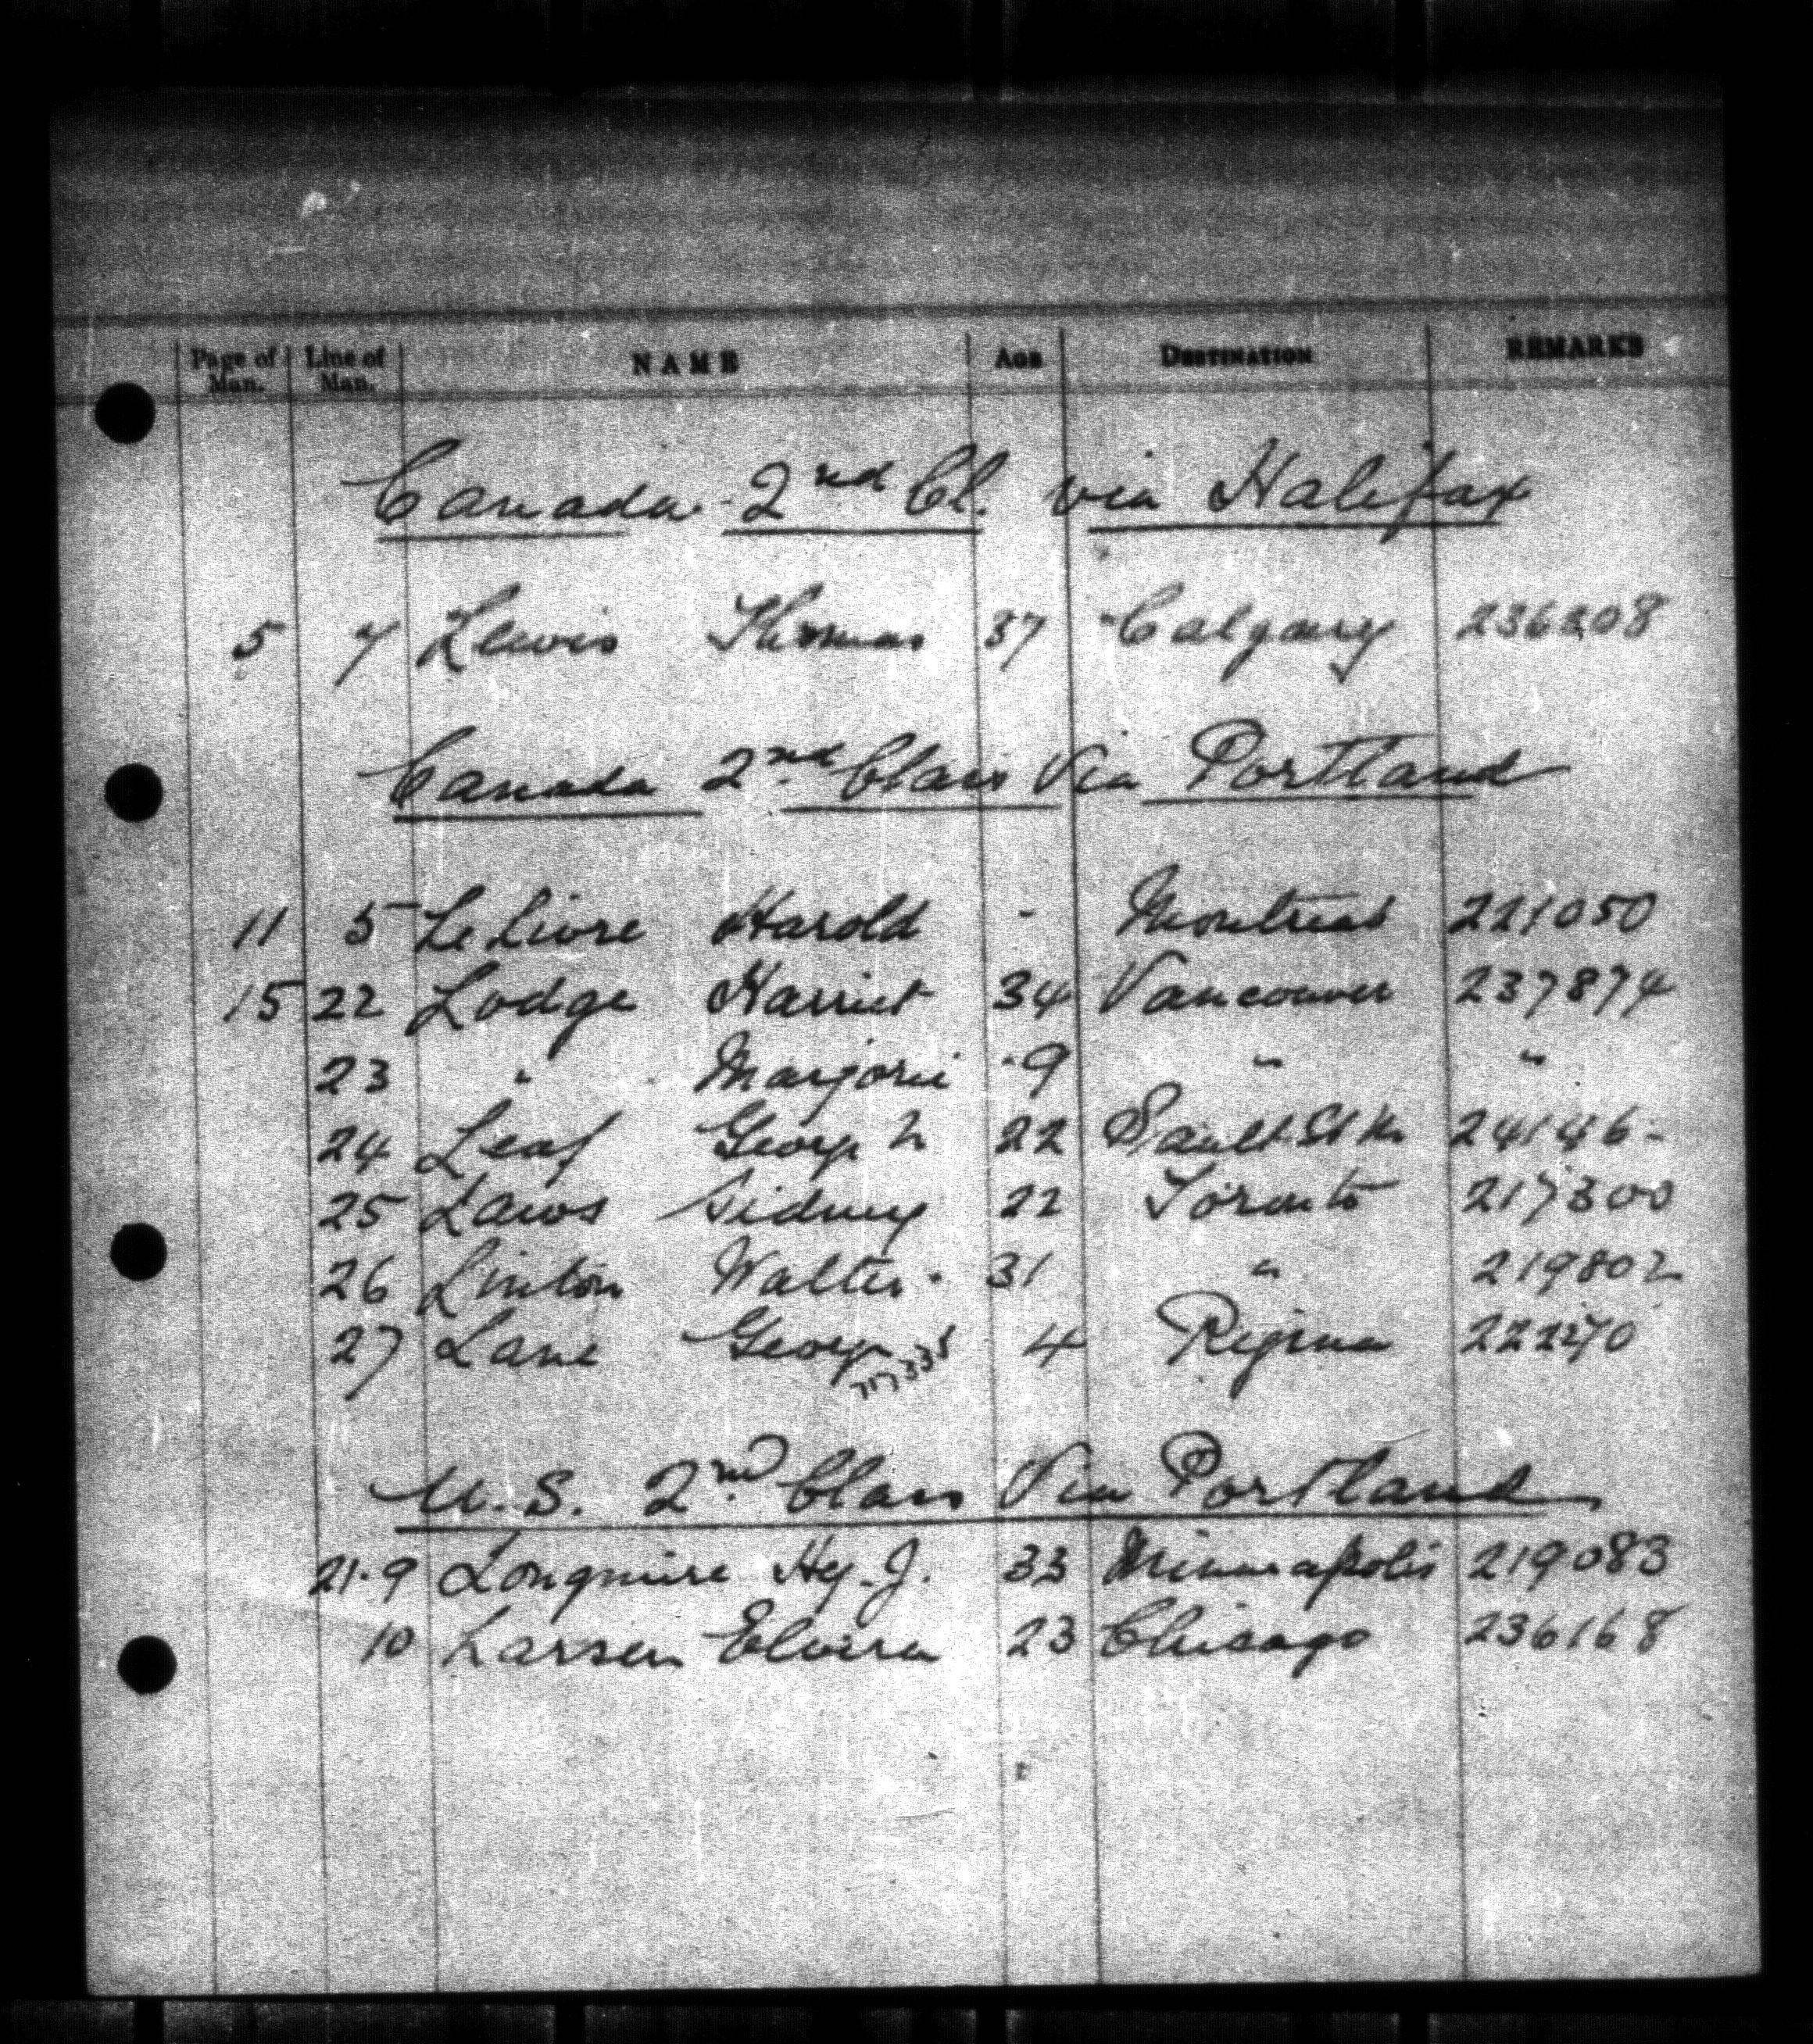 Page of Man. Line of Man. NAME AGE DESTINATION REMARKS
Canada 2nd Cl. via Halifax
5 7 Lewis Thomas 37 Calgary 236208
Canada 2nd Class Via Portland
11 5 Le Livre Harold - Montreal 221050
15 22 Lodge Harriet 34 Vancouver 237874
23 " Marjorie 9 " "
24 Leaf George 22 Sault St M 24146-
25 Laws Sidney 22 Toronto 217300
26 Linton Walter 31 " 219802
27 Lane George 4 Regina 222270
U.S. 2nd Class Via Portland
21.9 Longmire Hy. J. 33 Minneapolis 219083
10 Larsen Elvira 23 Chicago 236168